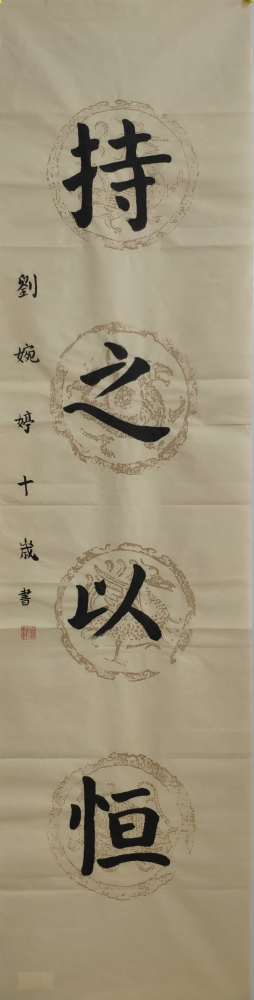 持之以恒
劉婉婷十歲書